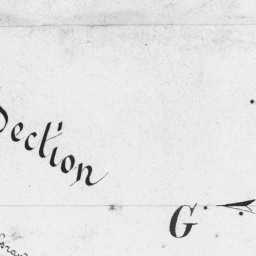 Section
G